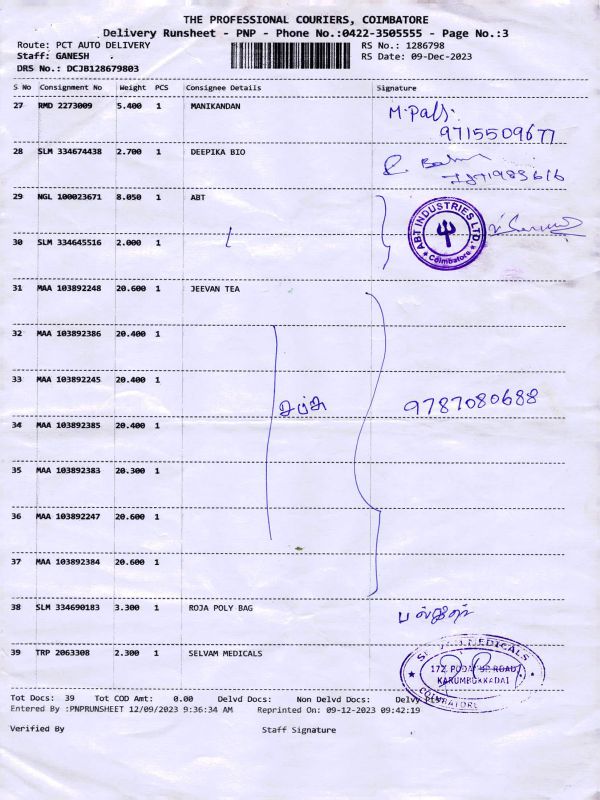 THE PROFESSIONAL COURIERS, COIMBATORE
Delivery Runsheet - PNP - Phone No.:0422-3505555 - Page No.:3
Route: PCT AUTO DELIVERY RS No.: 1286798
Staff: GANESH RS Date: 09-Dec-2023
DRS No.: DCJB128679803
S No Consignment No Weight PCS Consignee Details Signature
27 RMD 2273009 5.400 1 MANIKANDAN M.Pals.
9715509677
28 SLM 334674438 2.700 1 DEEPIKA BIO
29 NGL 100023671 8.050 1 ABT
ABT INDUSTRIES LTD.
Coimbatore
30 SLM 334645516 2.000 1
31 MAA 103892248 20.600 1 JEEVAN TEA
32 MAA 103892386 20.400 1
33 MAA 103892245 20.400 1
9787080688
34 MAA 103892385 20.400 1
35 MAA 103892383 20.300 1
36 MAA 103892247 20.600 1
37 MAA 103892384 20.600 1
38 SLM 334690183 3.300 1 ROJA POLY BAG
39 TRP 2063308 2.300 1 SELVAM MEDICALS
MEDICALS
172, ROAD
KARUMBUKKADAI
COIMBATORE
Tot Docs: 39 Tot COD Amt: 0.00 Delvd Docs: Non Delvd Docs: Delvy
Entered By :PNPRUNSHEET 12/09/2023 9:36:34 AM Reprinted On: 09-12-2023 09:42:19
Verified By Staff Signature